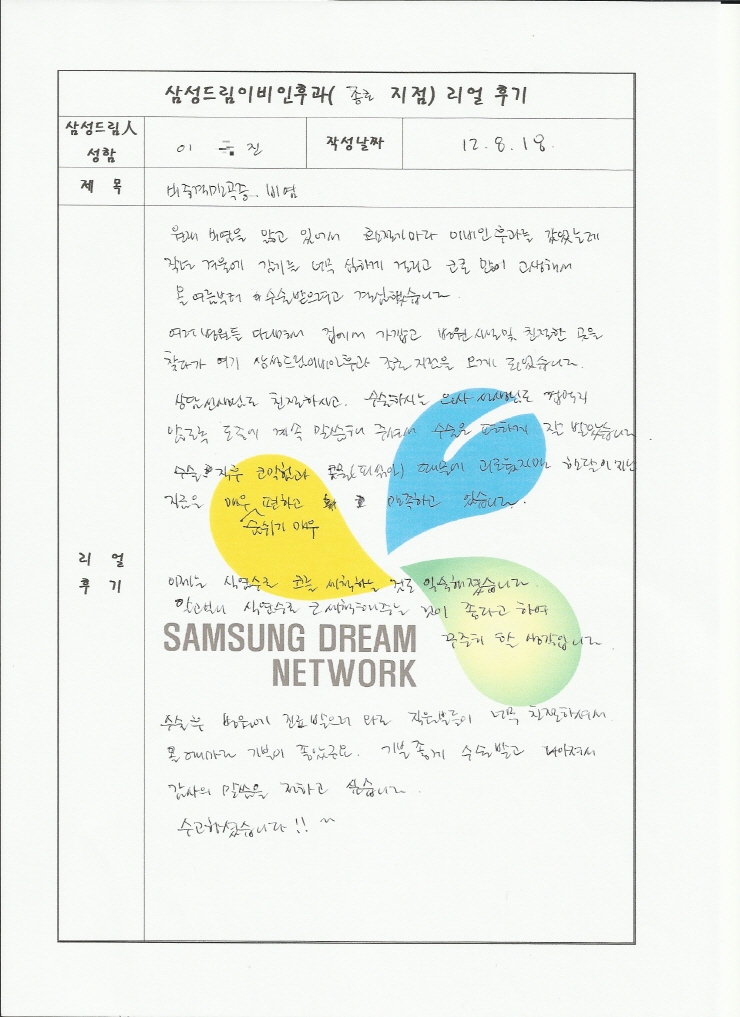 삼성드림이비인후과( 종로 지점) 리얼 후기
삼성드림人 성함
이 진
작성날짜
12. 8. 18.
제 목
비중격만곡증. 비염
리 얼 후 기
원래 비염을 앓고 있어서 환절기마다 이비인후과를 갔었는데
작년 겨울에 감기를 너무 심하게 걸리고 코로 많이 고생해서
올 여름부터 수술받으려고 결심했습니다.
여러 병원들 다녀보며 집에서 가깝고 병원 시설및 친절한 곳을
찾다가 여기 삼성드림이비인후과 종로지점을 오게 되었습니다.
상담선생님도 친절하시고. 수술하시는 의사 선생님도 겁먹지
않도록 도중에 계속 말씀해 주셔서 수술을 편하게 잘 받았습니다
수술 직후 코막힘과 콧물(피섞인) 때문에 괴로웠지만 한달이 지난
지금은 매우 편하고 만족하고 있습니다.
숨쉬기 매우
이제는 식염수로 코를 세척하는 것도 익숙해졌습니다.
알고보니 식염수로 코세척해주는 것이 좋다고 하여
꾸준히 할 생각입니다
SAMSUNG DREAM
NETWORK
수술후 병원에 진료 받으러 와도 직원분들이 너무 친절하셔서
올때마다 기분이 좋았구요. 기분좋게 수술받고 나아져서
감사의 말씀을 전하고 싶습니다.
수고하셨습니다!! ~